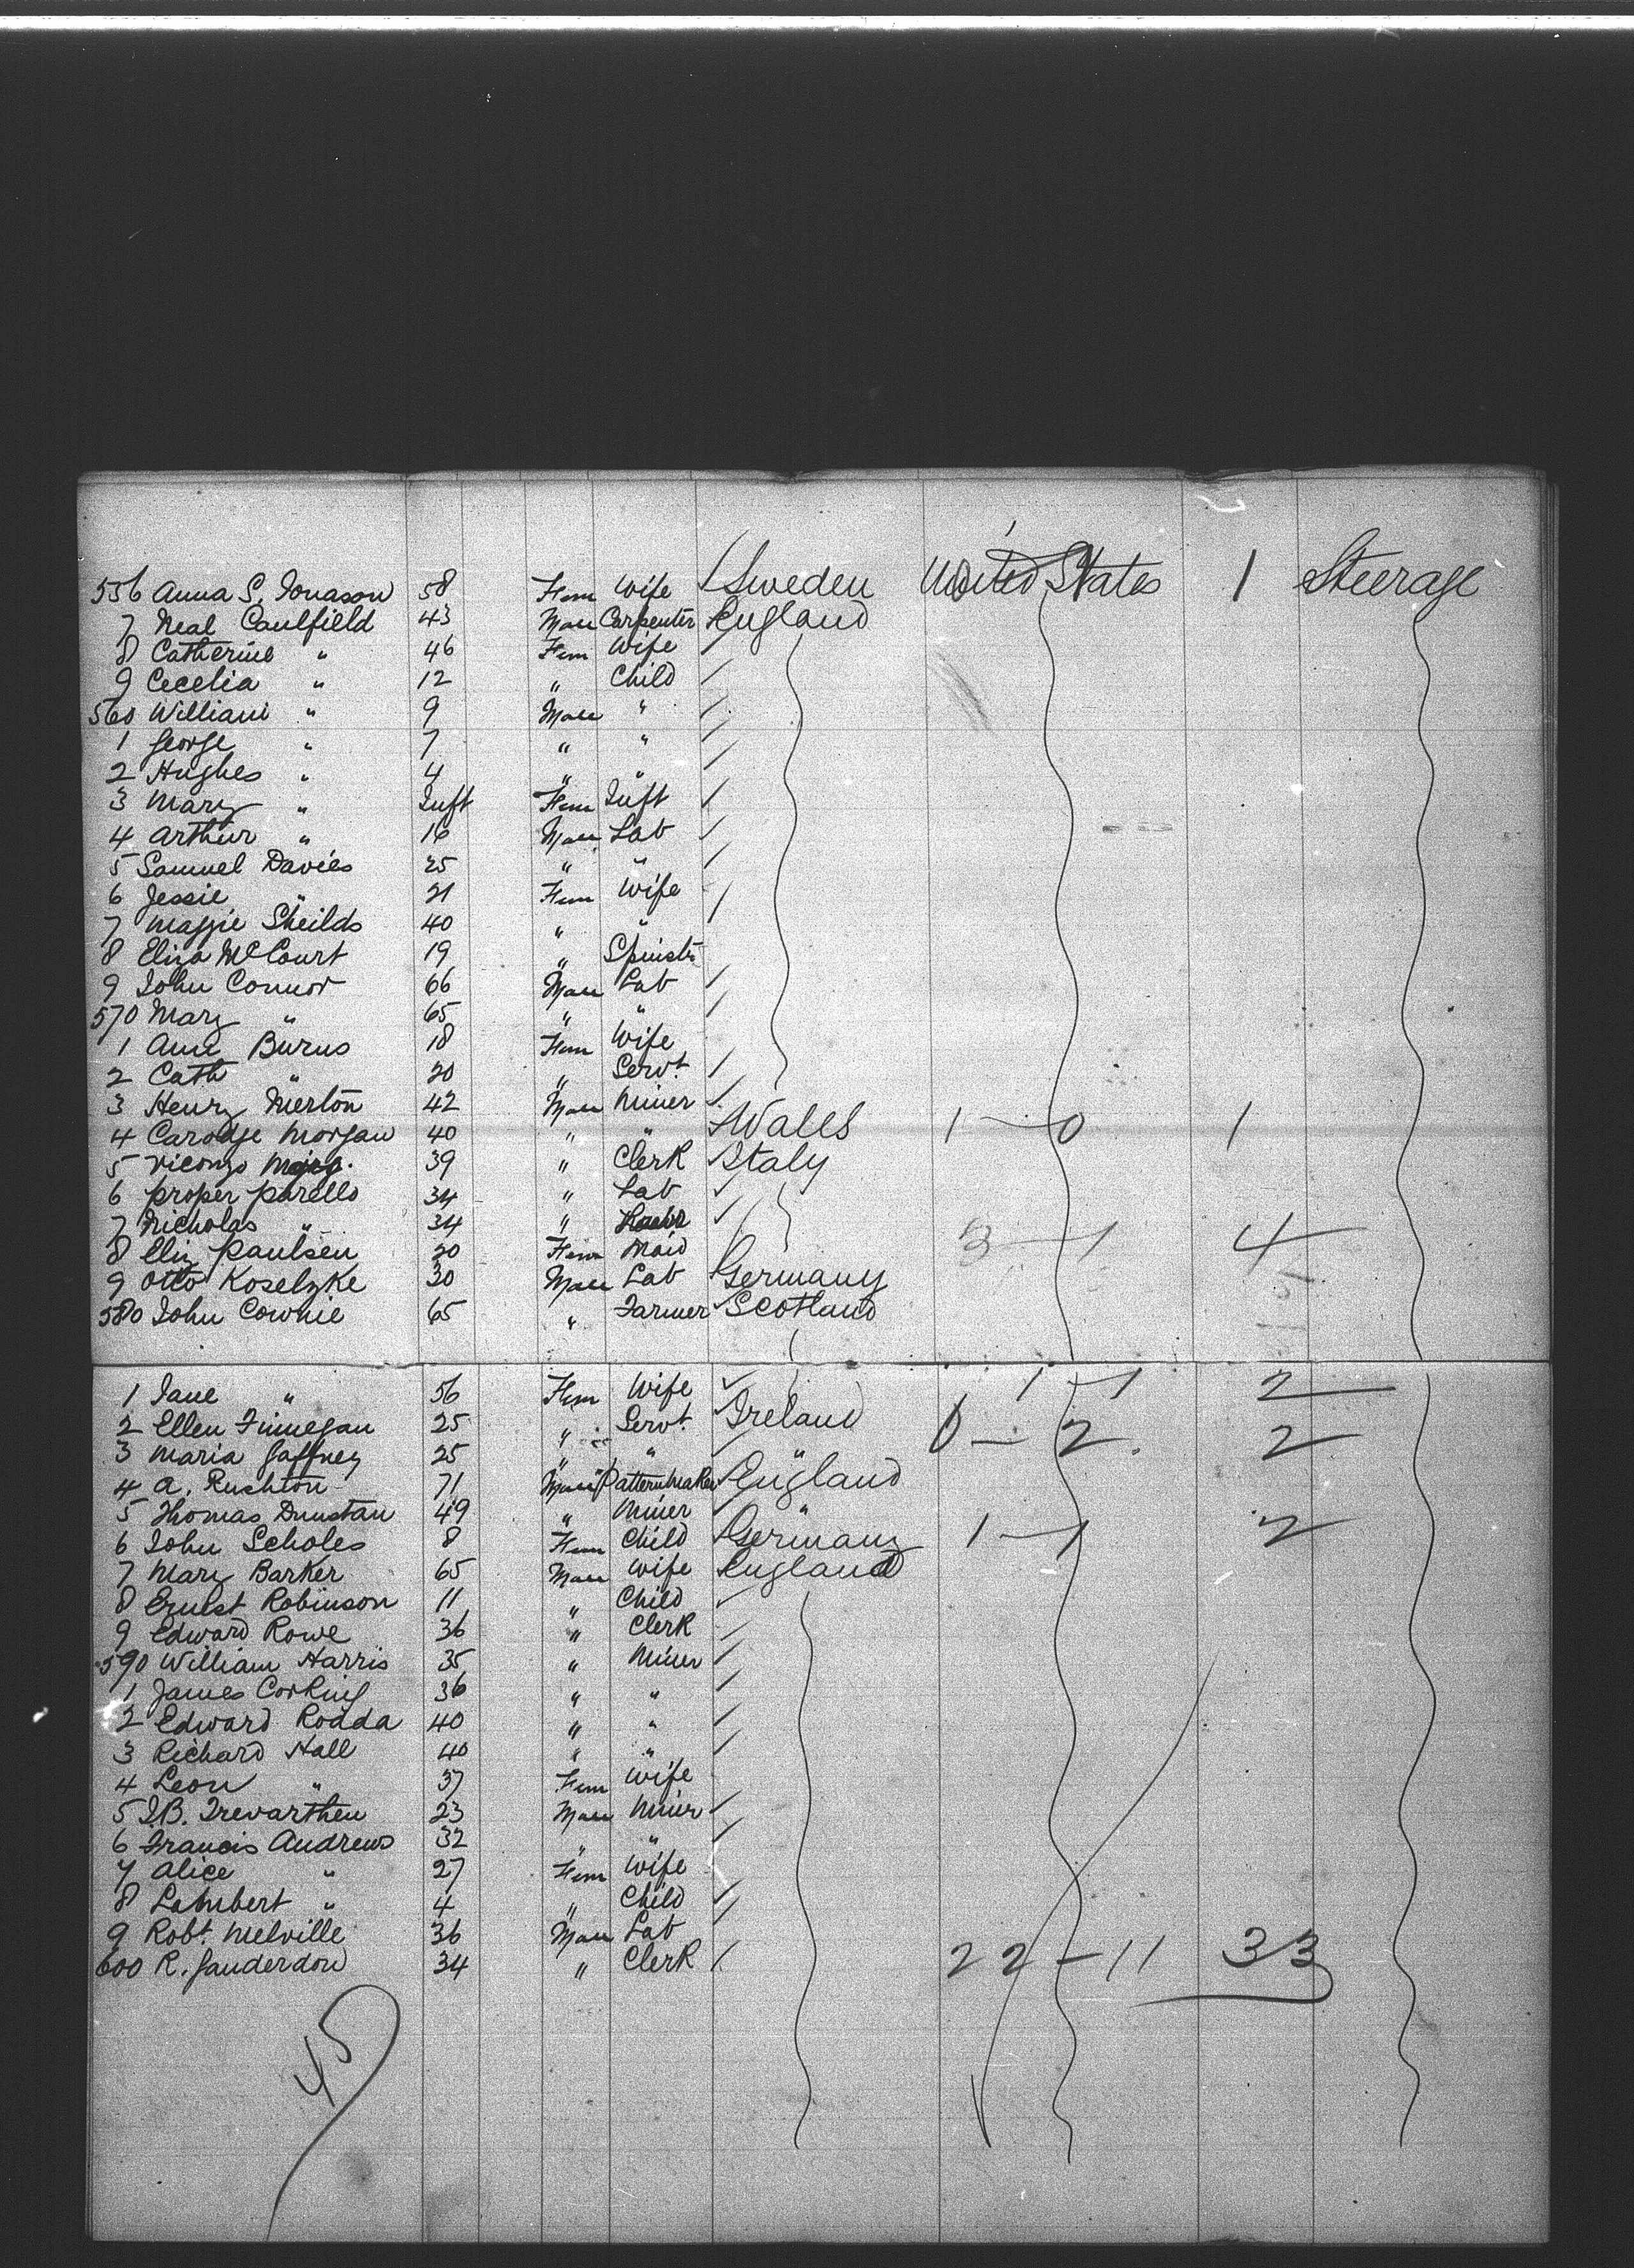 556 Anna S. Jonason 58 Fem Wife Sweden United States 1 Steerage
7 Neal Caulfield 43 Male Carpenter England
8 Catherine " 46 Fem Wife
9 Cecelia " 12 " Child
560 William " 9 Male "
1 George " 7 " "
2 Hughes " 4 " "
3 Mary " Inft Fem Inft
4 Arthur " 16 Male Lab
5 Samuel Davies 25 " "
6 Jessie " 21 Fem Wife
7 Maggie Sheilds 40 " "
8 Eliza McCourt 19 " Spinstr
9 John Connor 66 Male Lab
570 Mary " 65 " "
1 Ann Burns 18 Fem Wife
2 Cath " 20 " Servt
3 Henry Merton 42 Male Miner
4 Morgan 40 " " Wales 1-0 1
5 39 " Clerk Italy
6 Proper Parello 34 " Lab
7 Nicholas " 34 " 3-1 4
8 Eliz Paulsen 20 Fem Maid
9 Otto Koselzke 30 Male Lab Germany
580 John Cownie 65 " Farmer Scotland
1 Jane " 56 Fem Wife 1-1 2
2 Ellen Finnegan 25 " Servt Ireland 0-2 2
3 Maria Gaffney 25 " " "
4 A. Rushton 71 Male Patternmaker England
5 Thomas Dunstan 49 " Miner "
6 John Scholes 8 Fem Child Germany 1-1 2
7 Mary Barker 65 Male Wife England
8 Ernest Robinson 11 " Child
9 Edward Rowe 36 " Clerk
590 William Harris 35 " Miner
1 James Corking 36 " "
2 Edward Rodda 40 " "
3 Richard Hall 40 " "
4 Leon " 37 Fem Wife
5 J.B. Trevarthen 23 Male Miner
6 Francis Andrews 32 " "
7 Alice " 27 Fem Wife
8 Lambert " 4 " Child
9 Robt. Melville 36 Male Lab
600 R. Ganderdon 34 " Clerk 22-11 33
45